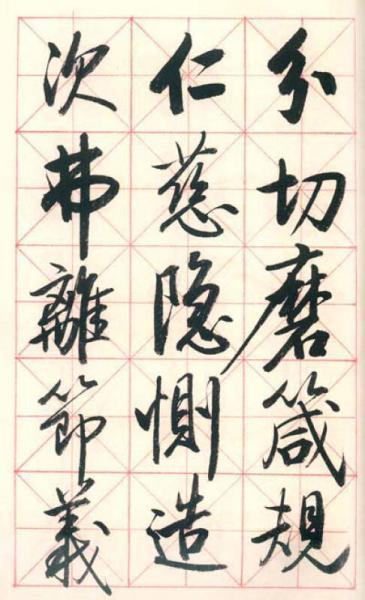 分切磨箴規
仁慈隐惻造
次弗離節義